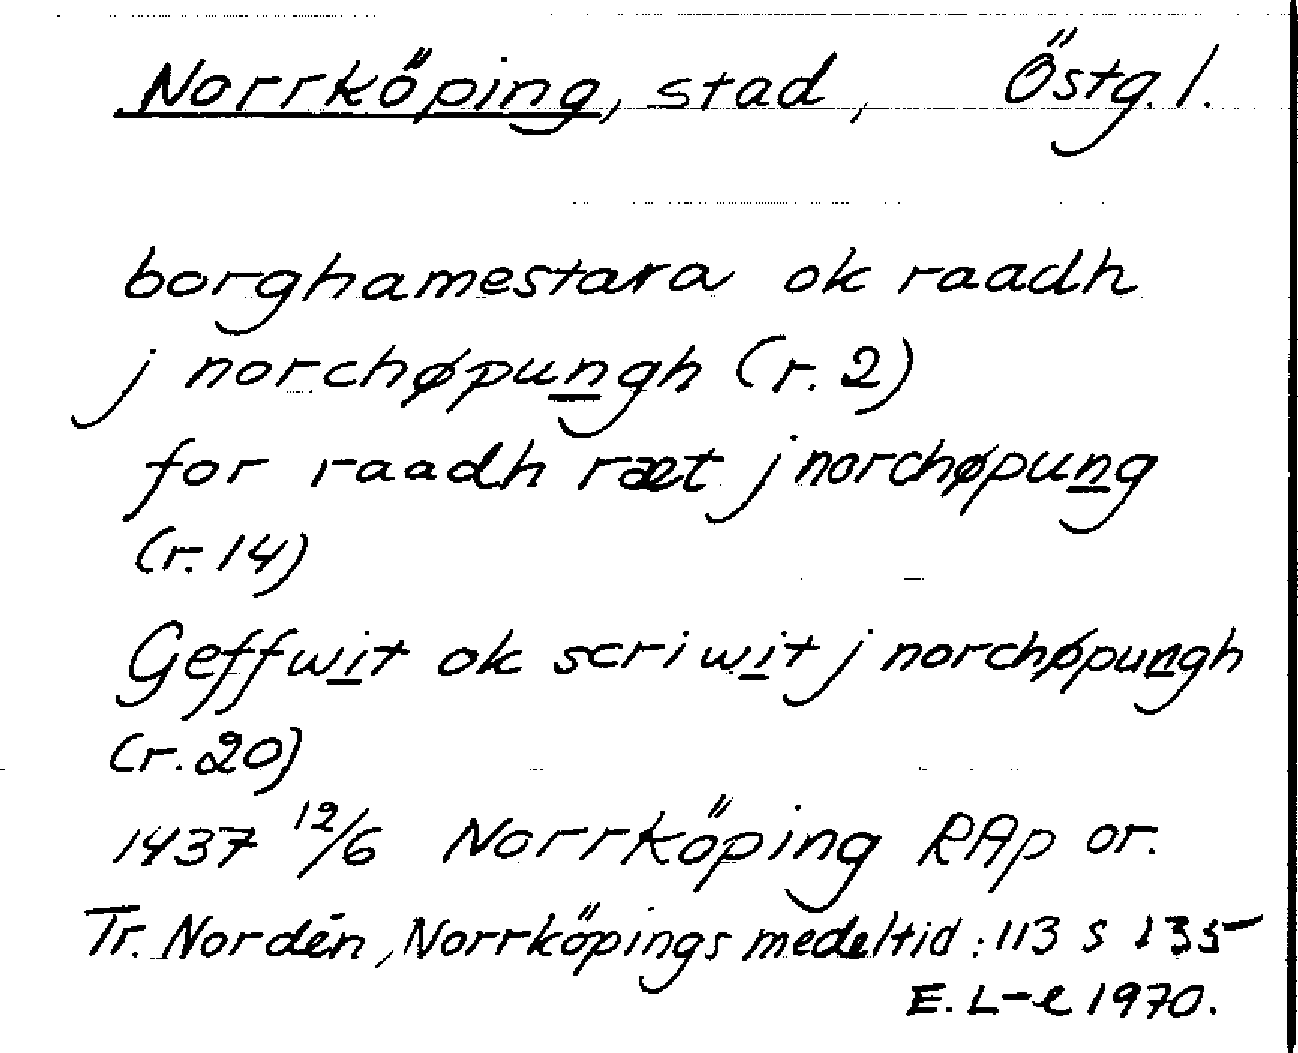 Norrköping, stad, Östg. l.
borghamestara ok raadh
j norchøpungh (r. 2)
for raadh ræt j norchøpung
(r. 14)
Geffwit ok scriwit j norchøpungh
(r. 20)
1437 12/6 Norrköping RAp or.
Tr. Nordén, Norrköpings medeltid : 113 s 135
E. L-e 1970.